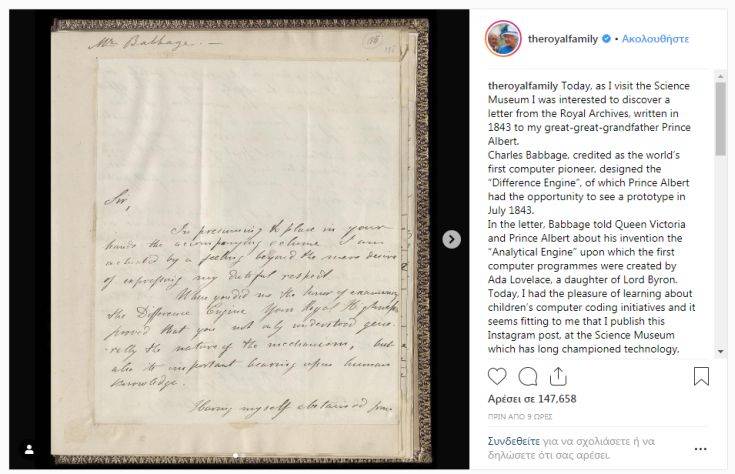 Mr Babbage. —
Sir,
In presuming to place in your
hands the accompanying volume I am
actuated by a feeling beyond the mere desire
of expressing my dutiful respect.
When you did me the honor of examining
the Difference Engine Your Royal Highness
proved that you not only understood gene-
rally the nature of the mechanism, but
also its important bearing upon human
knowledge.
Having myself abstained from
theroyalfamily • Ακολουθήστε
theroyalfamily Today, as I visit the Science
Museum I was interested to discover a
letter from the Royal Archives, written in
1843 to my great-great-grandfather Prince
Albert.
Charles Babbage, credited as the world’s
first computer pioneer, designed the
“Difference Engine”, of which Prince Albert
had the opportunity to see a prototype in
July 1843.
In the letter, Babbage told Queen Victoria
and Prince Albert about his invention the
“Analytical Engine” upon which the first
computer programmes were created by
Ada Lovelace, a daughter of Lord Byron.
Today, I had the pleasure of learning about
children’s computer coding initiatives and it
seems fitting to me that I publish this
Instagram post, at the Science Museum
which has long championed technology,
Αρέσει σε 147,658
ΠΡΙΝ ΑΠΌ 9 ΏΡΕΣ
Συνδεθείτε για να σχολιάσετε ή να
δηλώσετε ότι σας αρέσει.